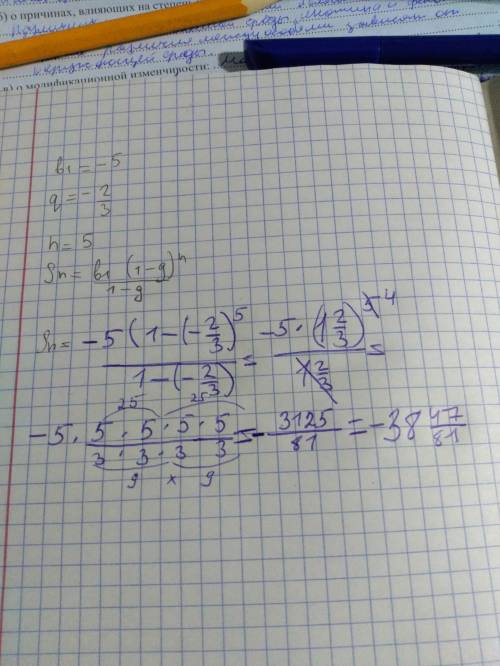 б) о причинах, влияющих на степень
окружающей среды.
в) о модификационной изменчивости:
b1 = -5
q = -2/3
n = 5
Sn = b1 (1-q)^n / 1-q
Sn = -5 (1-(-2/3)^5 / 1-(-2/3) = -5 · (1 2/3)^5 4 / 1 2/3 =
25 25
-5 · 5 · 5 · 5 · 5 / 3 · 3 · 3 3 = - 3125/81 = -38 47/81
9 × 9